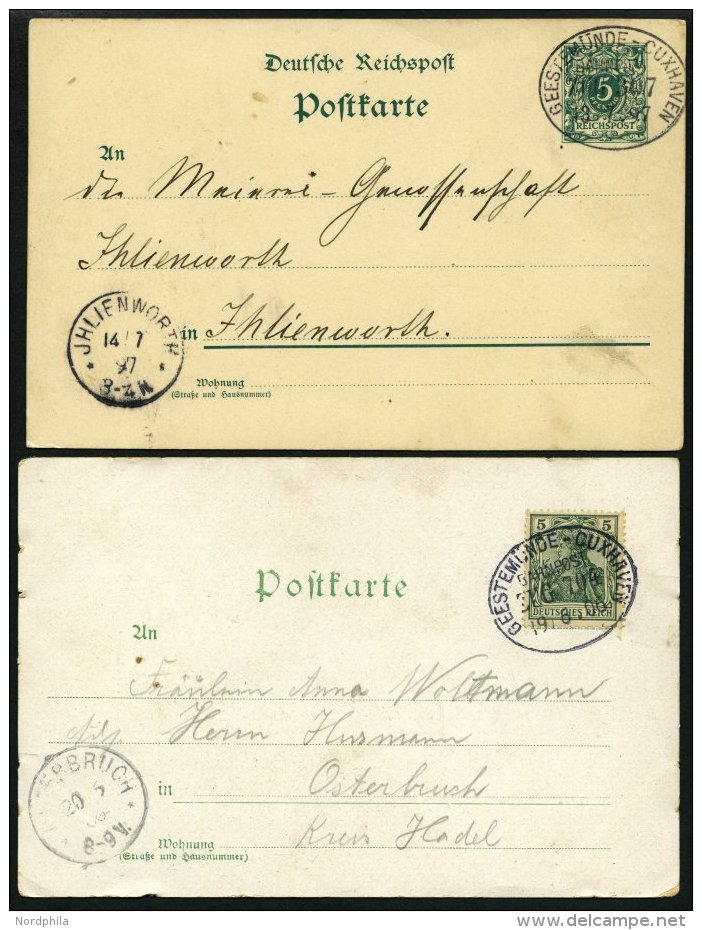 Deutsche Reichspost
Postkarte
GEESTEMÜNDE - CUXHAVEN
5
REICHSPOST
An
die Meierei-Genossenschaft
Ihlienworth
in Ihlienworth.
JHLIENWORTH
14 7
97
3-4 N
Wohnung
(Straße und Hausnummer)
Postkarte
5 5
GEESTEMÜNDE - CUXHAVEN
BAHNPOST
ZUG 704
DEUTSCHES REICH
An
Fräulein Anna Woltmann
Herrn Husmann
in Osterbruch
Kreis Hadel
BRUCH
20 5
8-9V.
Wohnung
(Straße und Hausnummer)
Nordphila
delcampe.net